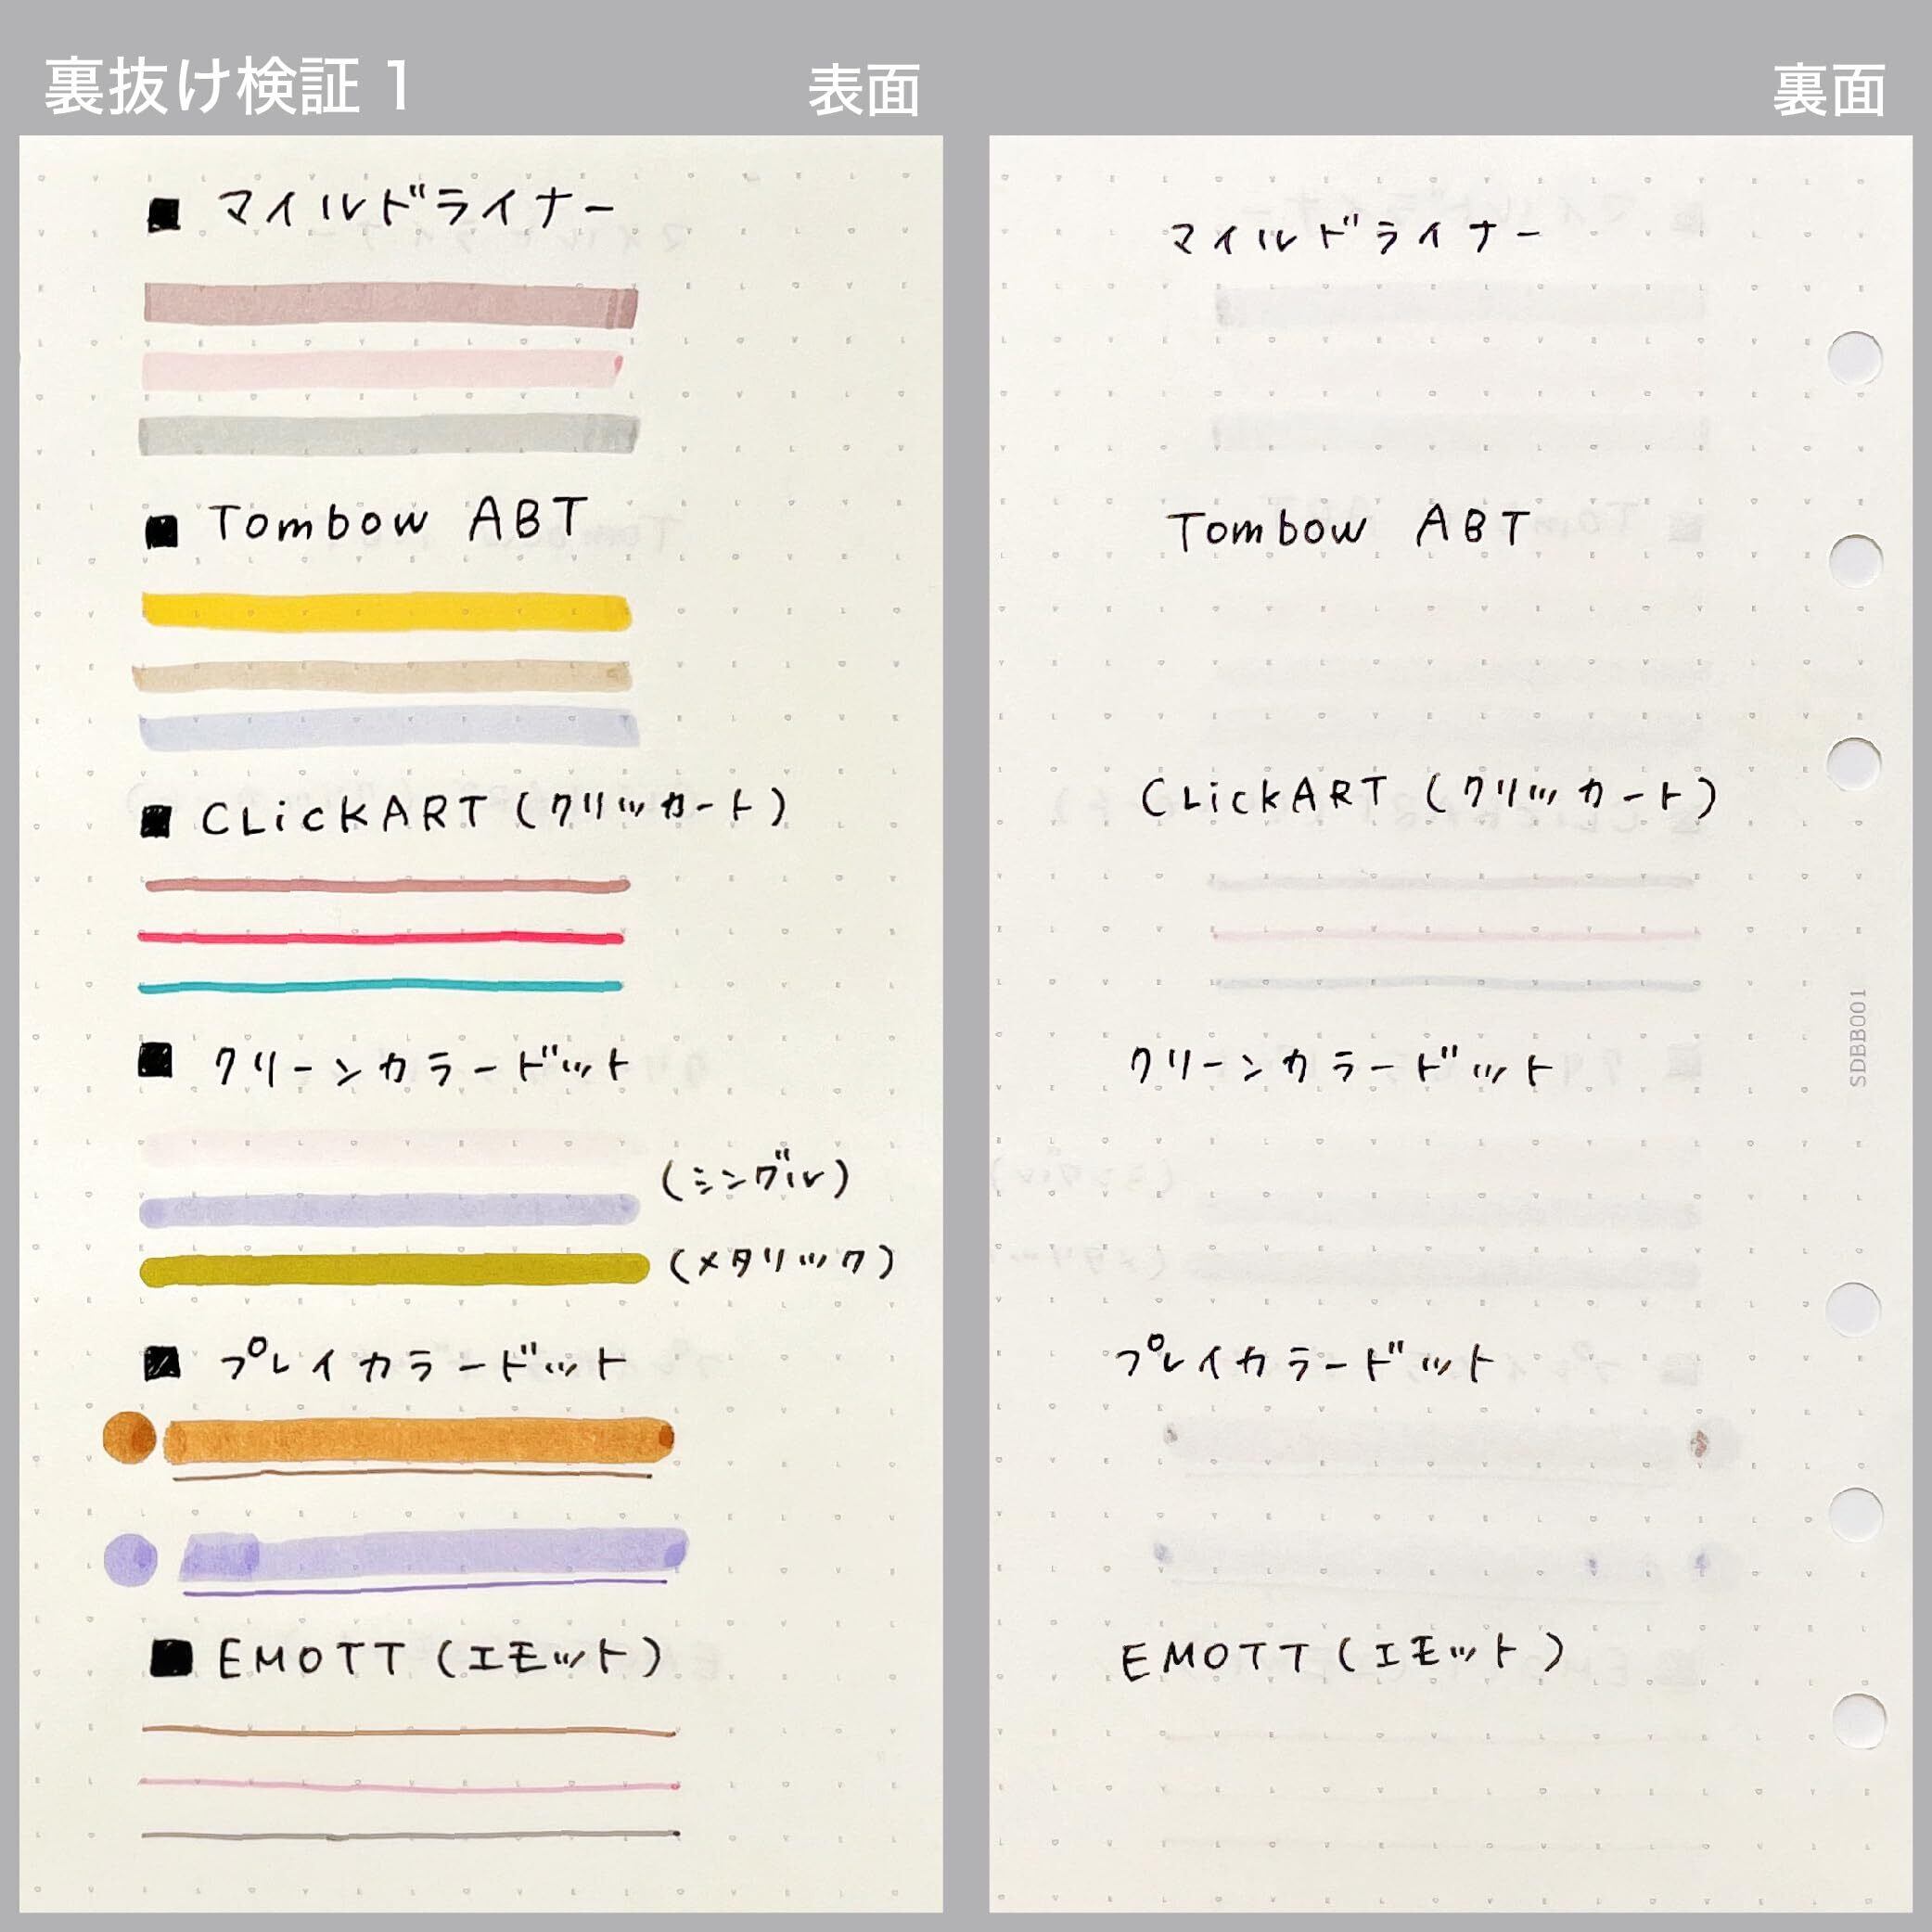 裏抜け検証1
表面
■ マイルドライナー
■ Tombow ABT
■ CLickART(クリッカート)
■ クリーンカラードット
(シングル)
(メタリック)
■ プレイカラードット
■ EMOTT(エモット)
裏面
マイルドライナー
Tombow ABT
CLickART(クリッカート)
クリーンカラードット
プレイカラードット
EMOTT(エモット)
SDBB001